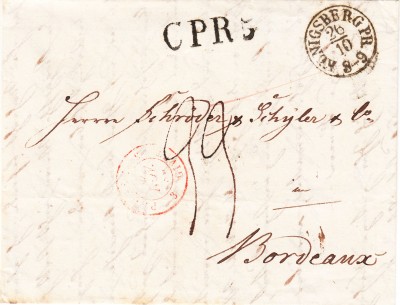 CPR5
KÖNIGSBERG PR.
26
10
8-9
Herrn Schröder & Schyler & Co.
in
Bordeaux